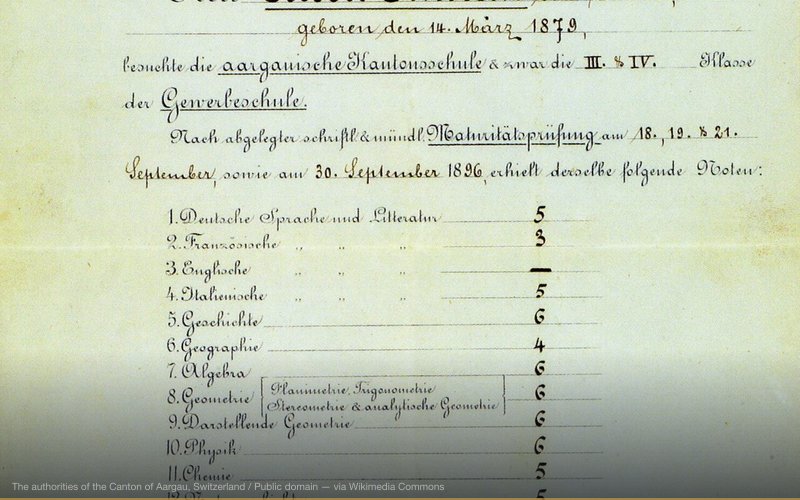 geboren den 14. März 1879,
besuchte die aargauische Kantonsschule & zwar die III. & IV. Klasse
der Gewerbeschule.
Nach abgelegter schriftl. & mündl. Maturitätsprüfung am 18., 19. & 21.
September, sowie am 30. September 1896, erhielt derselbe folgende Noten:
1. Deutsche Sprache und Litteratur 5
2. Französische „ „ „ 3
3. Englische „ „ „ —
4. Italienische „ „ „ 5
5. Geschichte 6
6. Geographie 4
7. Algebra 6
8. Geometrie { Planimetrie, Trigonometrie } 6
Stereometrie & analytische Geometrie
9. Darstellende Geometrie 6
10. Physik 6
11. Chemie 5
The authorities of the Canton of Aargau, Switzerland / Public domain — via Wikimedia Commons